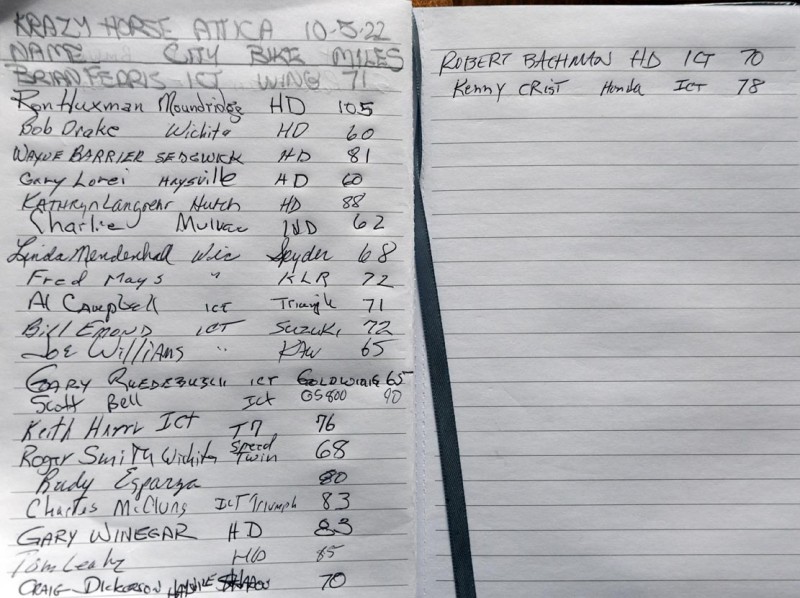 KRAZY HORSE ATTICA 10-5-22
NAME CITY BIKE MILES
BRIAN FERRIS ICT WING 71
Ron Huxman Moundridge HD 105
Bob Drake Wichita HD 60
WAYNE BARRIER SEDGWICK HD 81
Gary Lorei HAYSVILLE HD 60
KATHRYN Langrehr Hutch HD 88
Charlie Mulvane IND 62
Linda Mendenhall Wic Spyder 68
Fred Mays " KLR 72
Al Campbell ICT 71
Bill EMOND ICT SUZUKI 72
JOE WILLIAMS " KAW 65
GARY RUEDEBUSCH ICT GOLDWING 65
Scott Bell Ict GS800 90
Keith ICT T7 76
Roger Smith Wichita Speed Twin 68
Rudy Esparza 80
Charles McClung ICT Triumph 83
GARY WINEGAR HD 83
Tom Leahy HD 85
CRAIG DICKERSON 70
ROBERT BACHMAN HD ICT 70
Kenny CRIST Honda ICT 78